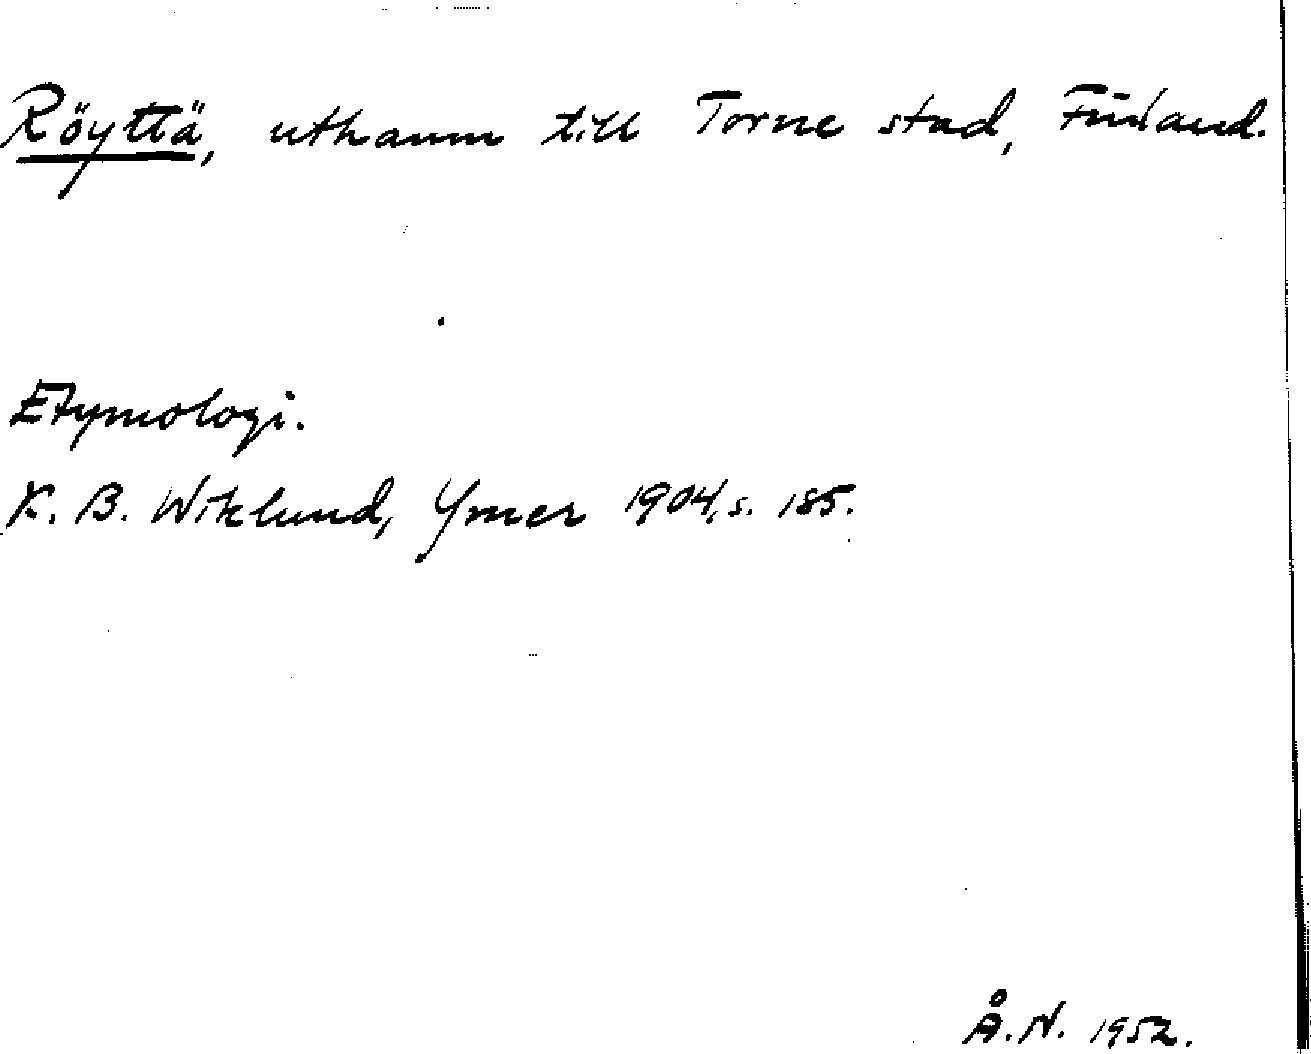 Röyttä, uthamn till Torne stad, Finland.
Etymologi.
K. B. Wiklund, Ymer 1904, s. 185.
Å. N. 1952.